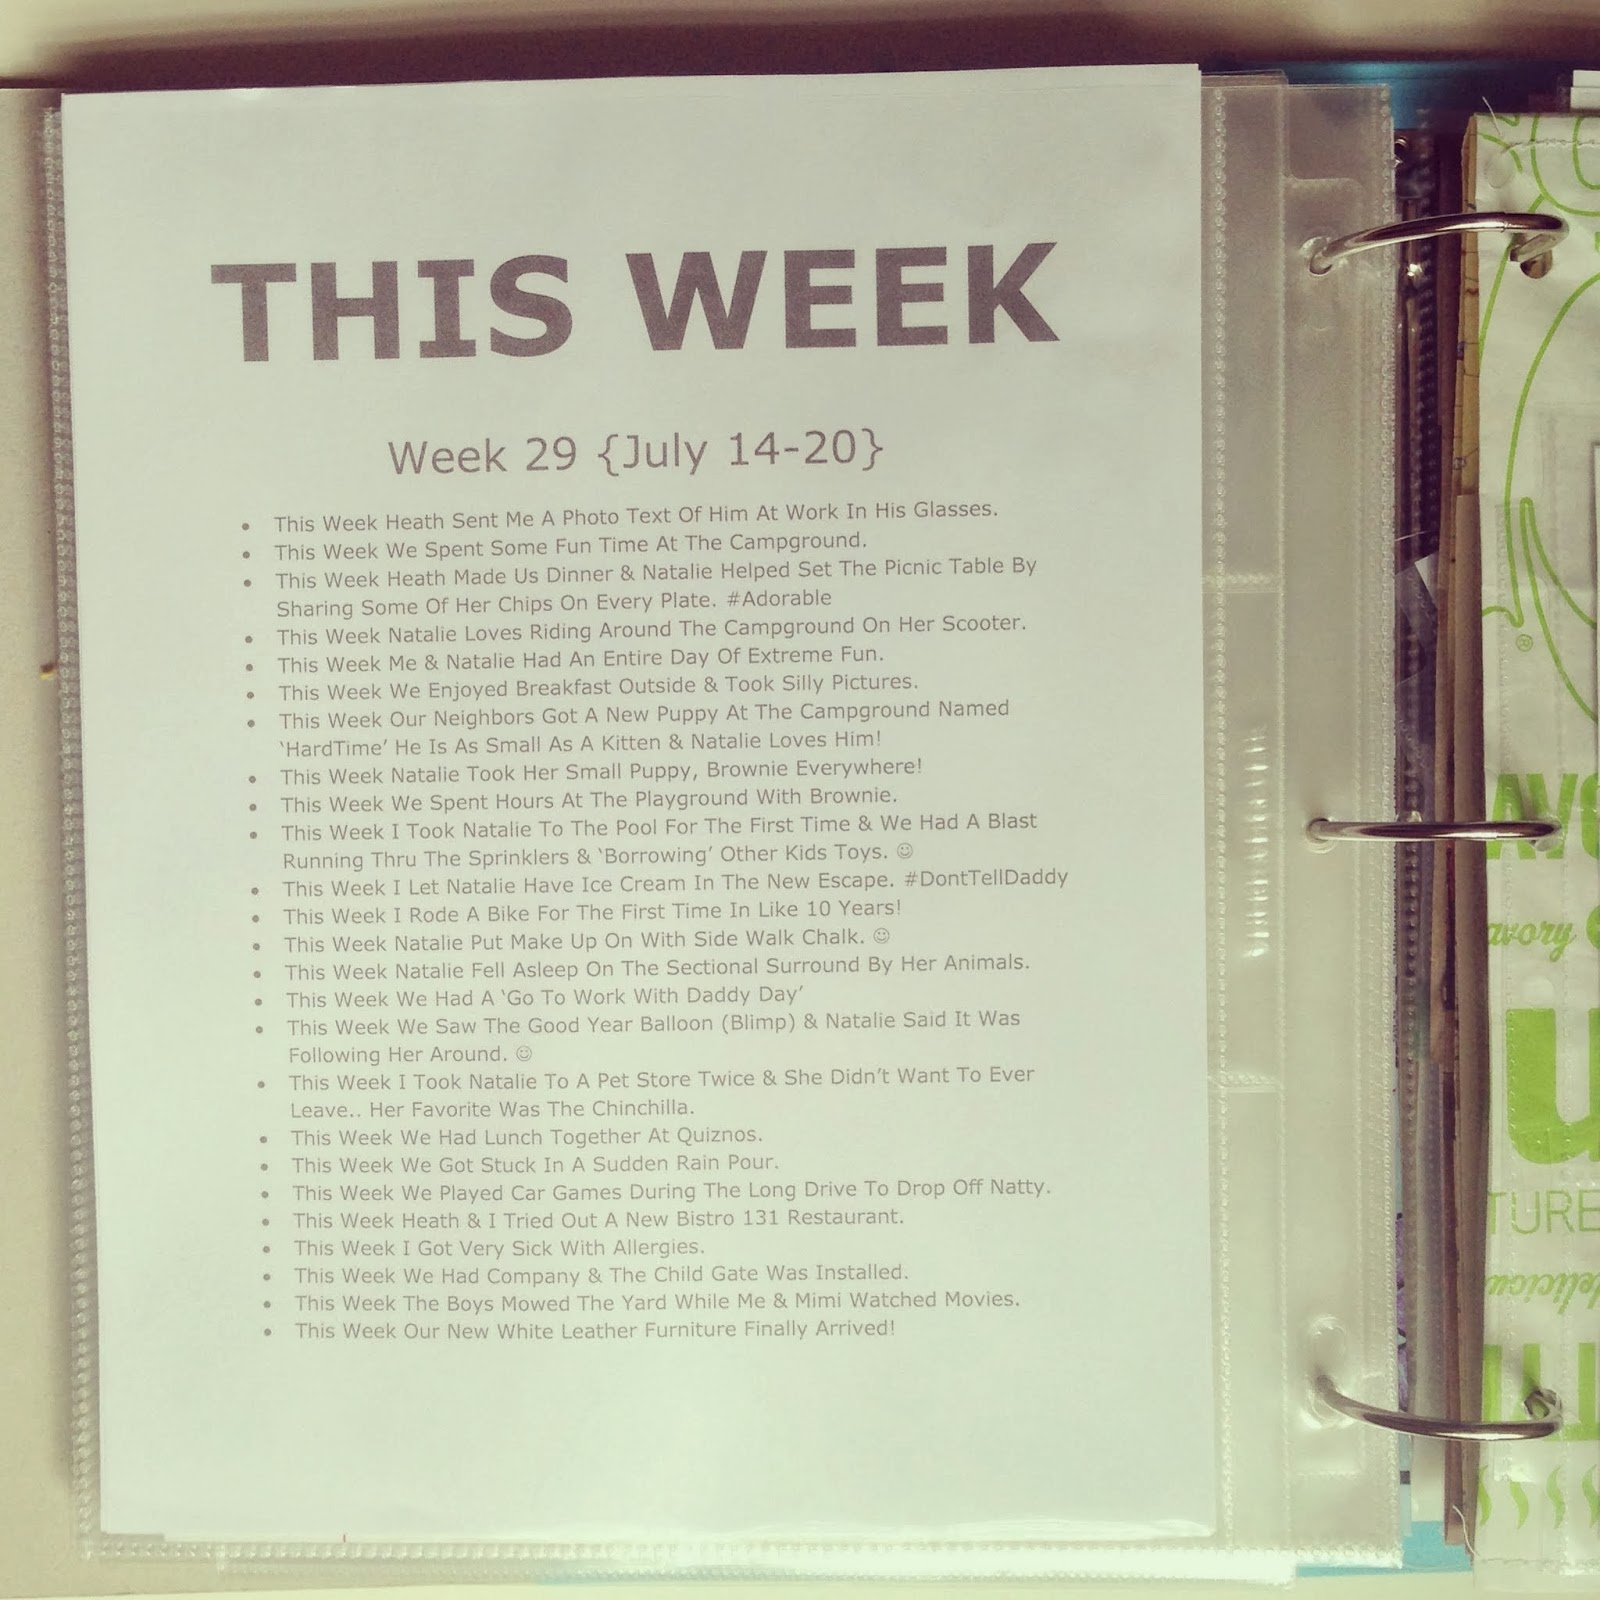 THIS WEEK
Week 29 {July 14-20}
• This Week Heath Sent Me A Photo Text Of Him At Work In His Glasses.
• This Week We Spent Some Fun Time At The Campground.
• This Week Heath Made Us Dinner & Natalie Helped Set The Picnic Table By
Sharing Some Of Her Chips On Every Plate. #Adorable
• This Week Natalie Loves Riding Around The Campground On Her Scooter.
• This Week Me & Natalie Had An Entire Day Of Extreme Fun.
• This Week We Enjoyed Breakfast Outside & Took Silly Pictures.
• This Week Our Neighbors Got A New Puppy At The Campground Named
‘HardTime’ He Is As Small As A Kitten & Natalie Loves Him!
• This Week Natalie Took Her Small Puppy, Brownie Everywhere!
• This Week We Spent Hours At The Playground With Brownie.
• This Week I Took Natalie To The Pool For The First Time & We Had A Blast
Running Thru The Sprinklers & ‘Borrowing’ Other Kids Toys. ☺
• This Week I Let Natalie Have Ice Cream In The New Escape. #DontTellDaddy
• This Week I Rode A Bike For The First Time In Like 10 Years!
• This Week Natalie Put Make Up On With Side Walk Chalk. ☺
• This Week Natalie Fell Asleep On The Sectional Surround By Her Animals.
• This Week We Had A ‘Go To Work With Daddy Day’
• This Week We Saw The Good Year Balloon (Blimp) & Natalie Said It Was
Following Her Around. ☺
• This Week I Took Natalie To A Pet Store Twice & She Didn’t Want To Ever
Leave.. Her Favorite Was The Chinchilla.
• This Week We Had Lunch Together At Quiznos.
• This Week We Got Stuck In A Sudden Rain Pour.
• This Week We Played Car Games During The Long Drive To Drop Off Natty.
• This Week Heath & I Tried Out A New Bistro 131 Restaurant.
• This Week I Got Very Sick With Allergies.
• This Week We Had Company & The Child Gate Was Installed.
• This Week The Boys Mowed The Yard While Me & Mimi Watched Movies.
• This Week Our New White Leather Furniture Finally Arrived!
®
AVO
avory
u
TURE